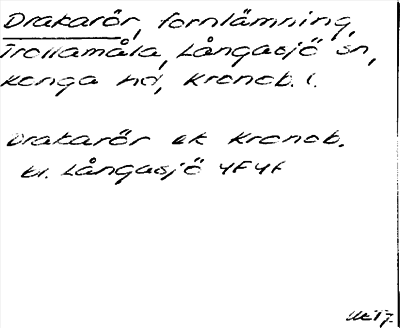 Drakarör, fornlämning,
Trollamåla, Långasjö sn,
Konga hd, Kronob. l.
Drakarör ek Kronob.
kr. Långasjö 4F4f